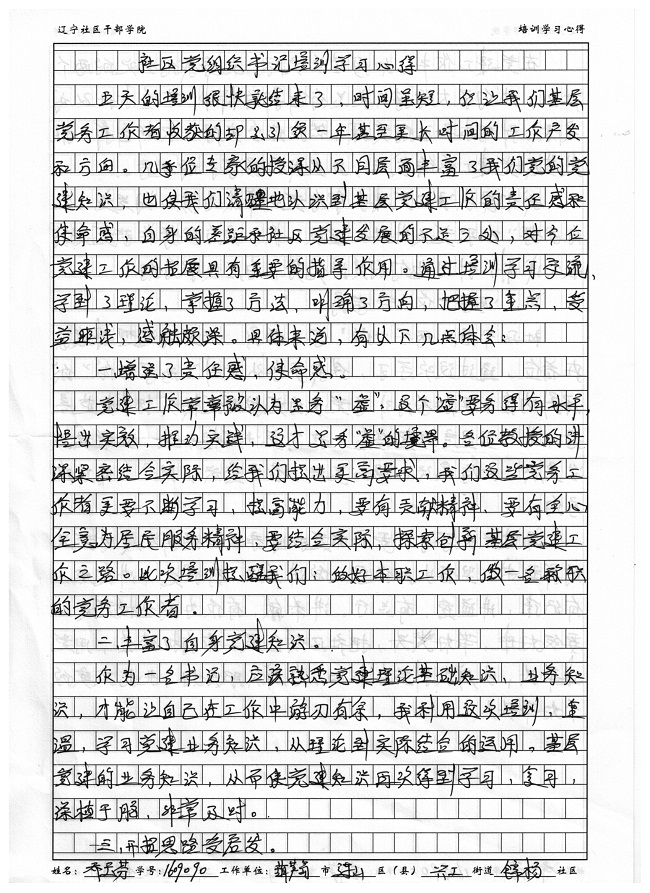 辽宁社区干部学院 培训学习心得
社区党组织书记培训学习心得
五天的培训很快就结束了，时间虽短，但让我们基层
党务工作者收获的却以引领一年甚至更长时间的工作
和方向。几位专家的授课从不同层面丰富了我们党的党
建知识，也使我们清醒地认识到基层党建工作的责任感和
使命感，自身的差距和社区党建发展的不足之处，对今后
党建工作的拓展具有重要的指导作用。通过培训学习交流，
学到了理论，掌握了方法，明确了方向，把握了重点，受
益匪浅，感触颇深。具体来说，有以下几点体会：
一.增强了责任感，使命感。
党建工作常常被认为是务“虚”，这个“虚”要务得有水平，
提出实效，推动实践，这才是务“虚”的境界。各位教授的讲
课紧密结合实际，给我们提出更高要求，我们这些党务工
作者更要不断学习，提高能力，要有奉献精神，要有全心
全意为居民服务精神，要结合实际，探索创新基层党建工
作之路。此次培训提醒我们：做好本职工作，做一名称职
的党务工作者。
二.丰富了自身党建知识。
作为一名书记，应该熟悉党建理论基础知识，业务知
识，才能让自己在工作中游刃有余，我利用这次培训，重
温，学习党建业务知识，从理论到实际结合的运用。基层
党建的业务知识，从而使党建知识再次得到学习，复习，
深植于脑，非常及时。
三.开拓思路受启发。
姓名： 学号：169090 工作单位：葫芦岛 市 连山 区（县） 兴工 街道 社区